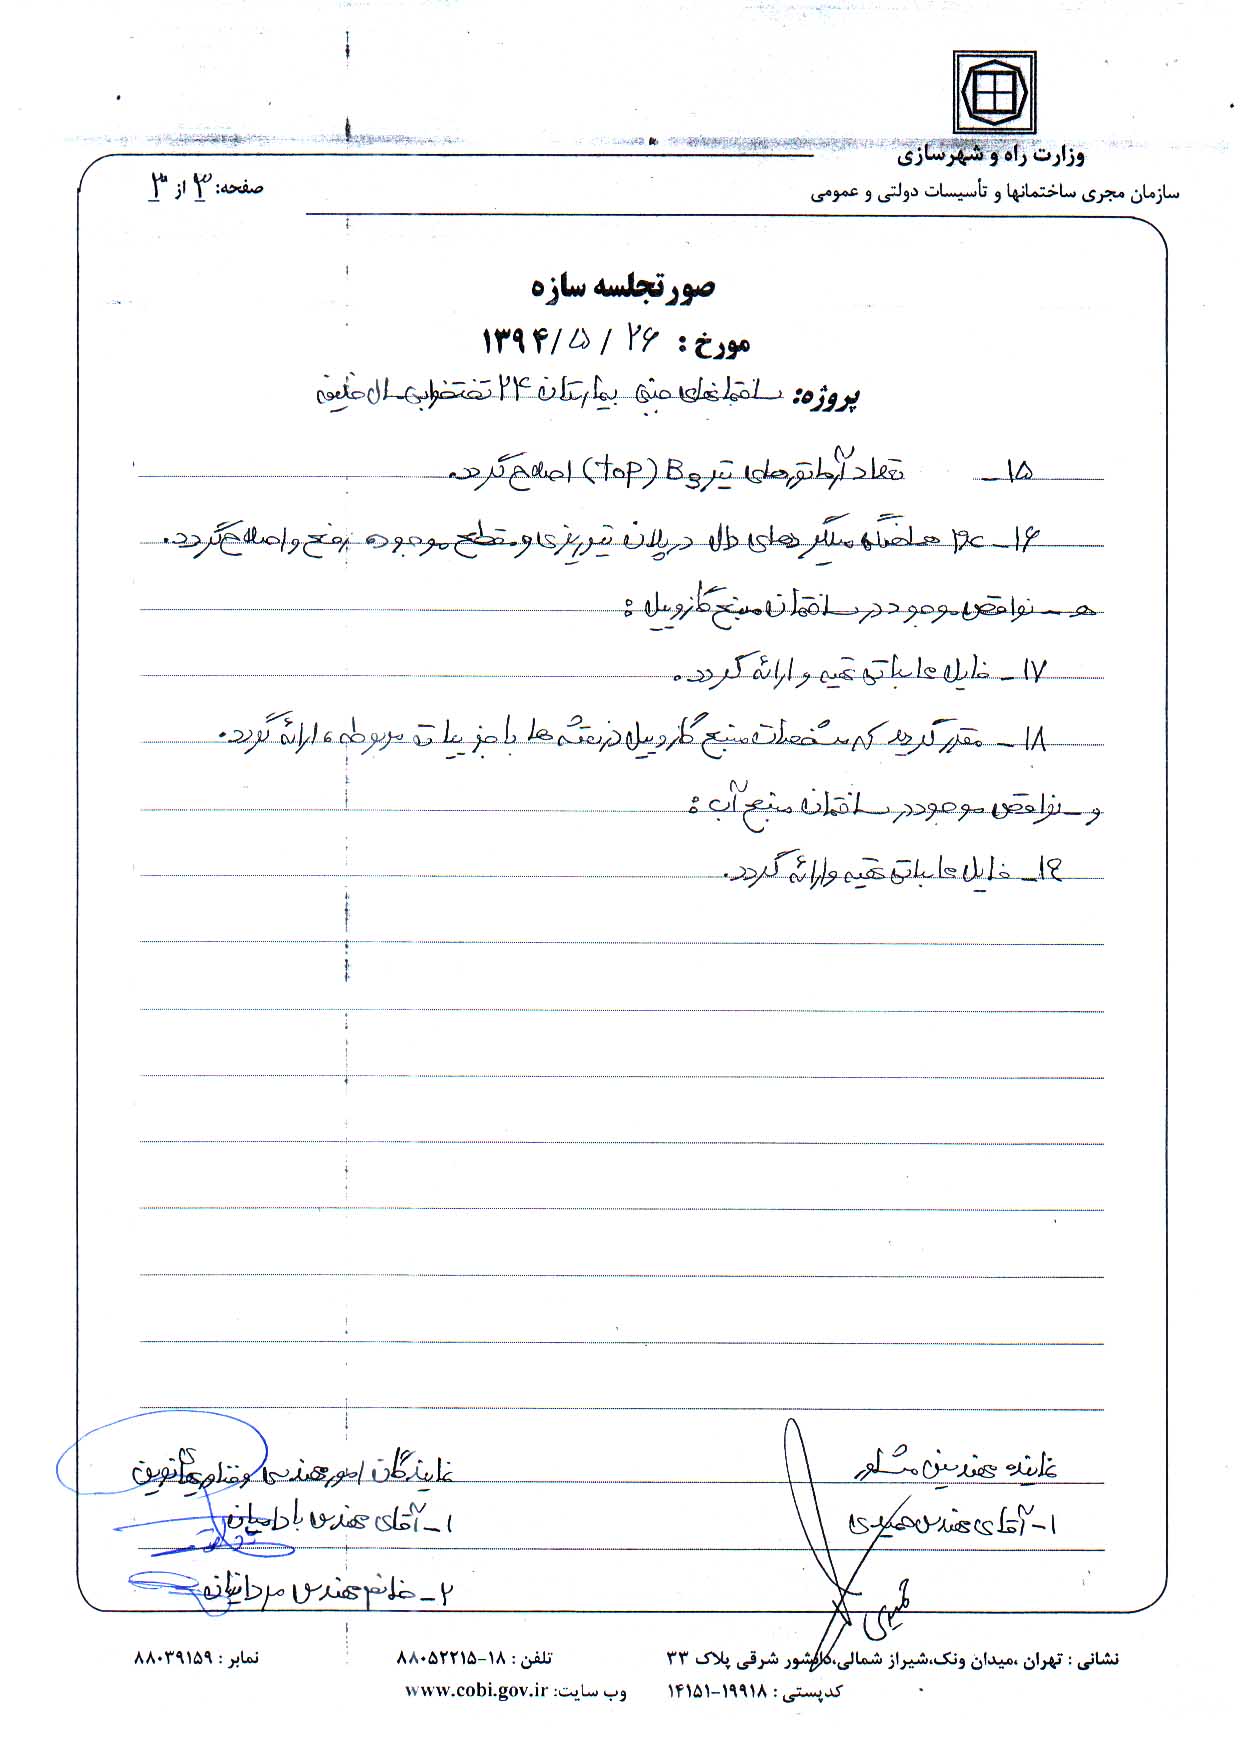 وزارت راه و شهرسازی
سازمان مجری ساختمانها و تأسیسات دولتی و عمومی
صفحه: ۳ از ۳
صورتجلسه سازه
مورخ : ۲۶ / ۵ / ۱۳۹۴
پروژه: ساختمانهای جنبی بیمارستان ۲۴ تختخوابی سال خلیفه
۱۵_ تعداد آرماتورهای تیر B3 (top) اصلاح گردد.
۱۶_ عدم هماهنگی میلگردهای دال در پلان تیرریزی و مقطع موجود، رفع و اصلاح گردد.
هـ _ نواقص موجود در ساختمان منبع گازوییل :
۱۷_ فایل محاسباتی تهیه و ارائه گردد.
۱۸_ مقرر گردید که مشخصات منبع گازوییل در نقشه ها با جزییات مربوطه، ارائه گردد.
و _ نواقص موجود در ساختمان منبع آب :
۱۹_ فایل محاسباتی تهیه و ارائه گردد.
نماینده مهندسین مشاور
نمایندگان امور مهندسی و فناوریهای نوین
۱_ آقای مهندس حمیدی
۱_ آقای مهندس بادامیان
۲_ خانم مهندس مردانیان
حمیدی
نشانی : تهران ،میدان ونک،شیراز شمالی،دانشور شرقی پلاک ۳۳
تلفن : ۱۸-۸۸۰۵۲۲۱۵
نمابر : ۸۸۰۳۹۱۵۹
کدپستی : ۱۹۹۱۸-۱۴۱۵۱
وب سایت: www.cobi.gov.ir